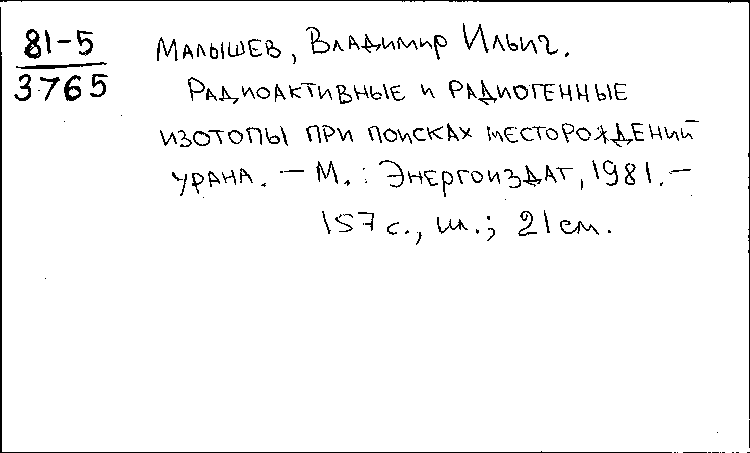 81-5
3765
Малышев, Владимир Ильич.
Радиоактивные и радиогенные
изотопы при поисках месторождений
урана. — М.: Энергоиздат, 1981. —
157 с., ил.; 21 см.